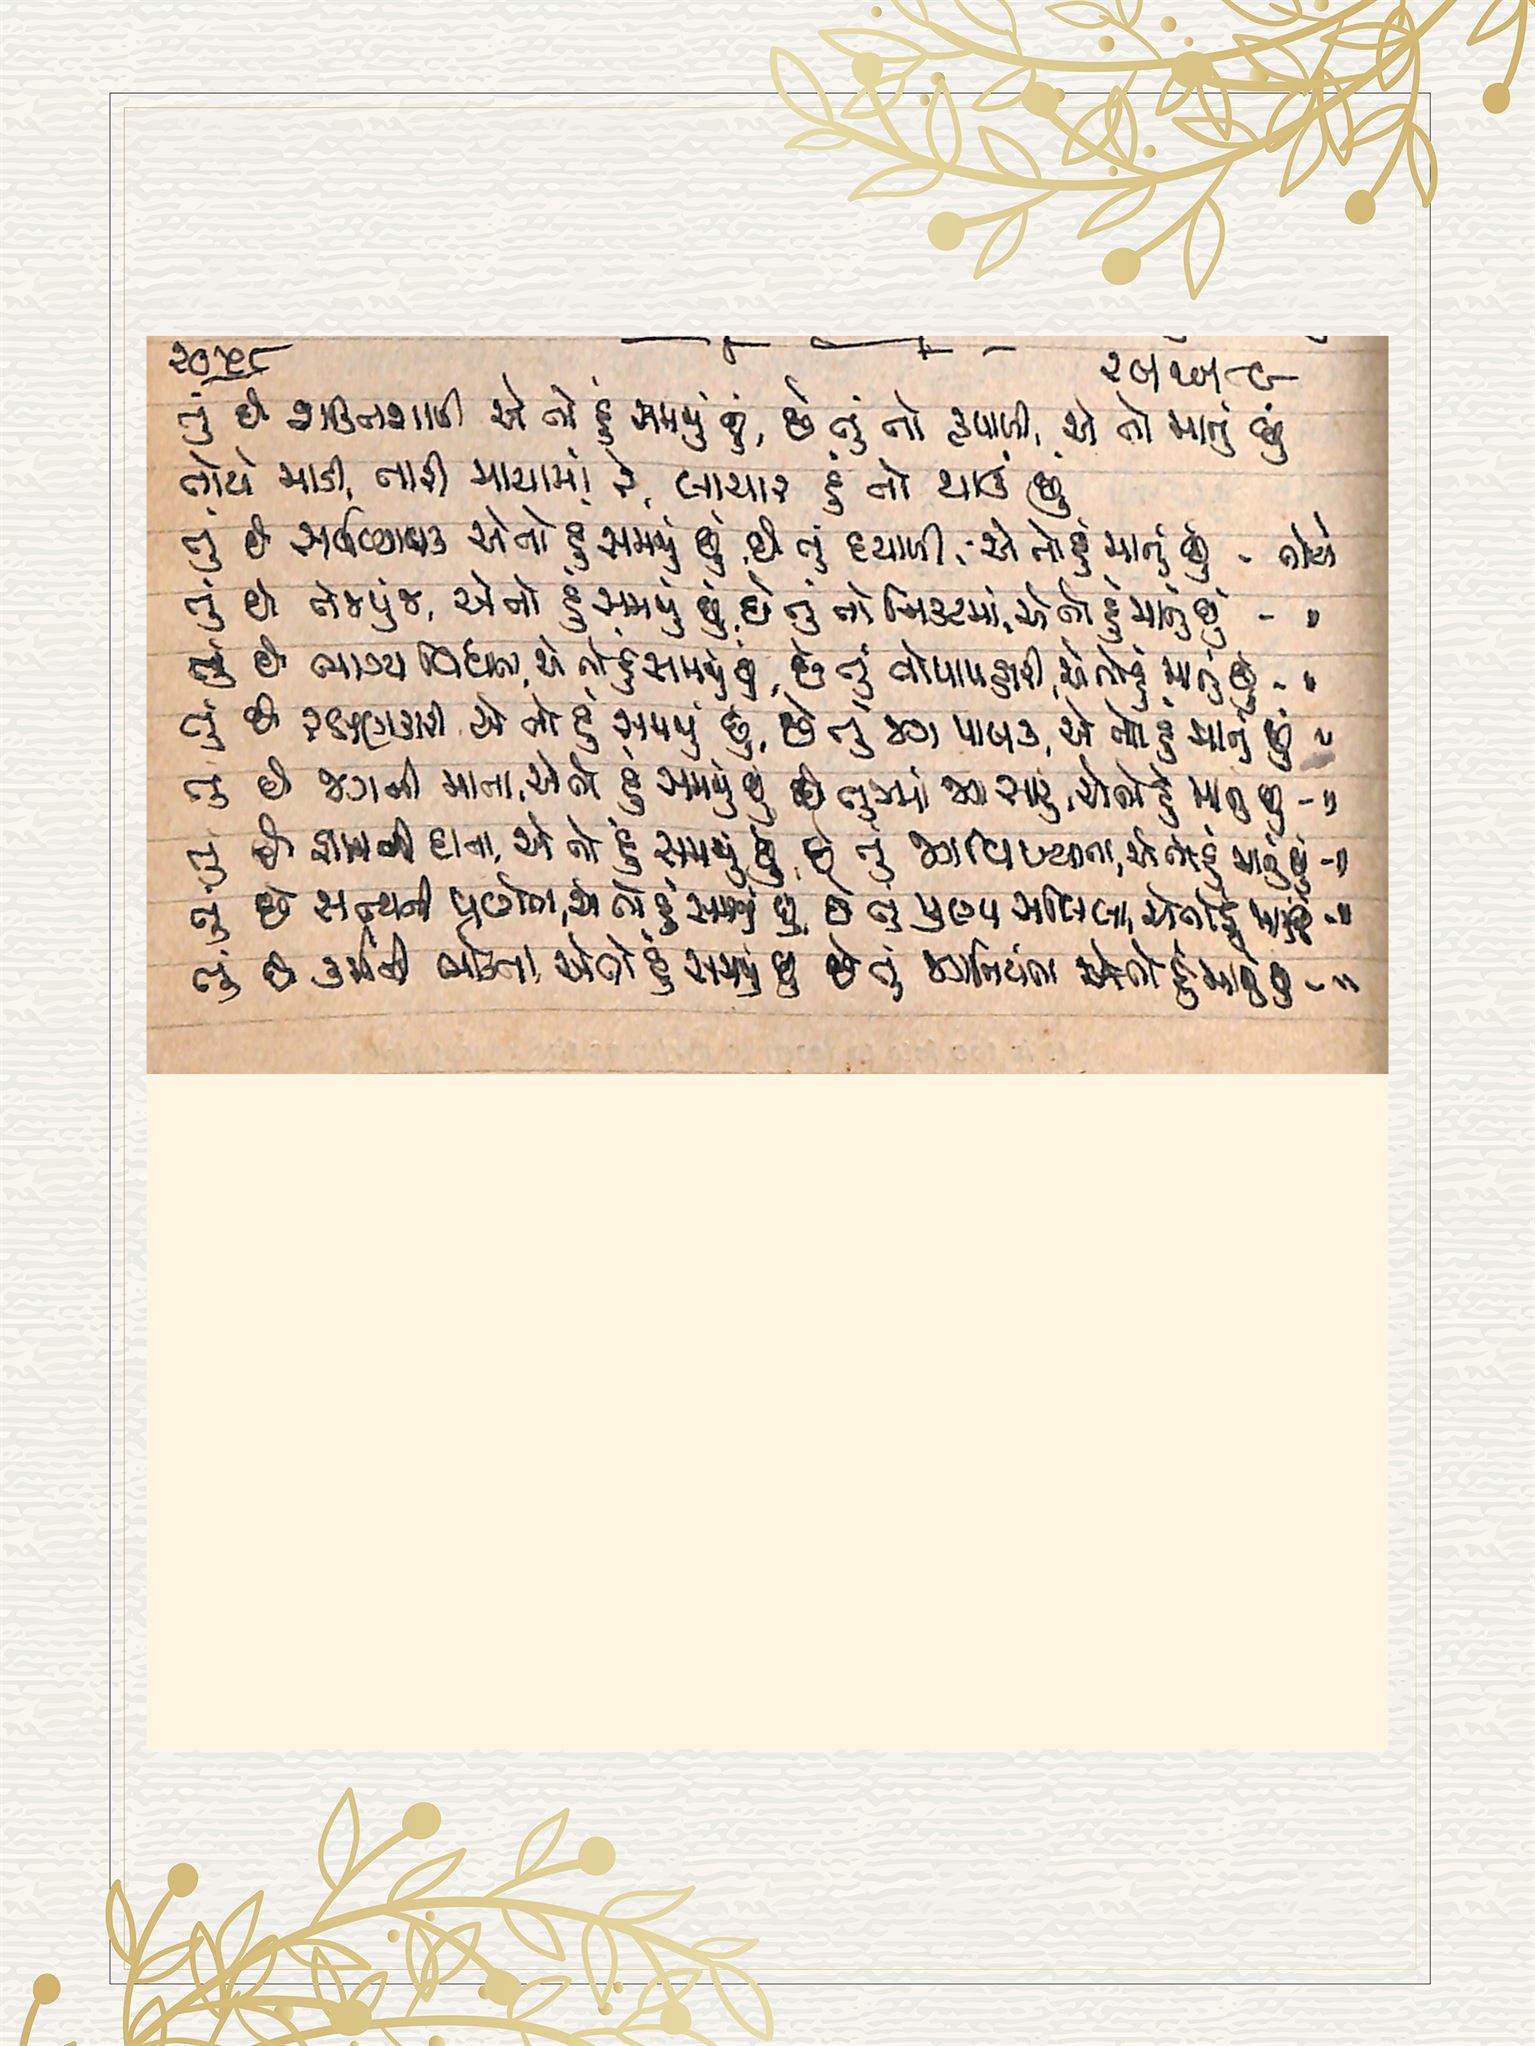 ૨૦૫૮
તું છે શક્તિશાળી એ તો હું સમજું છું, છે તું તો કૃપાળી, એ તો માનું છું
તોયે માડી, તારી માયામાં રે, લાચાર હું તો થાઉં છું
તું છે સર્વવ્યાપક એ તો હું સમજું છું, છે તું દયાળી, એ તો હું માનું છું - તોયે
તું છે તેજપુંજ, એ તો હું સમજું છું, છે તું તો નિકટમાં, એ તો હું માનું છું - "
તું છે ભાગ્ય વિધાતા, એ તો હું સમજું છું, છે તું તો પાપહારી, એ તો હું માનું છું - "
તું છે રક્ષણકારી એ તો હું સમજું છું, છે તું જગ પાલક, એ તો હું માનું છું "
તું છે જગની માતા, એ તો હું સમજું છું છે તુજમાં જગ સારું, એ તો હું માનું છું - "
તું છે દાતા, એ તો હું સમજું છું, છે તું જગવિખ્યાતા, એ તો હું માનું છું - "
તું છે સત્યની પ્રણેતા, એ તો હું સમજું છું, છે તું પ્રેમ સલિલા, એ તો હું માનું છું - "
તું છે કર્મની એ તો હું સમજું છું છે તું જગનિયંતા એ તો હું માનું છું - "